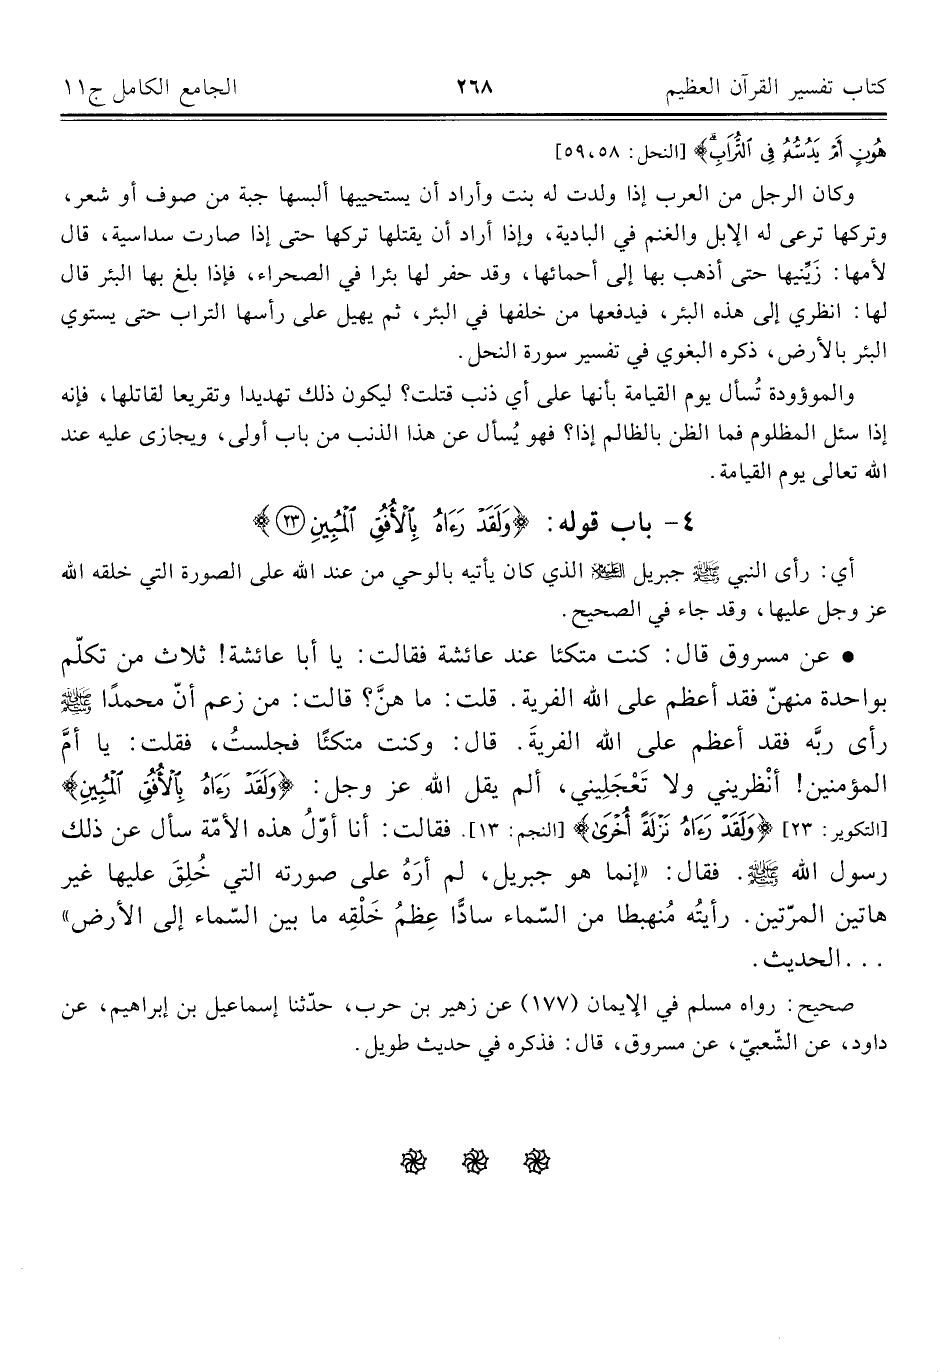 كتاب تفسير القرآن العظيم ٢٦٨ الجامع الكامل ج١١
هُونٍ أَمْ يَدُسُّهُۥ فِى ٱلتُّرَابِۗ﴾ [النحل: ٥٨، ٥٩]
وكان الرجل من العرب إذا ولدت له بنت وأراد أن يستحييها ألبسها جبة من صوف أو شعر،
وتركها ترعى له الإبل والغنم في البادية، وإذا أراد أن يقتلها تركها حتى إذا صارت سداسية، قال
لأمها: زَيِّنيها حتى أذهب بها إلى أحمائها، وقد حفر لها بئرا في الصحراء، فإذا بلغ بها البئر قال
لها: انظري إلى هذه البئر، فيدفعها من خلفها في البئر، ثم يهيل على رأسها التراب حتى يستوي
البئر بالأرض، ذكره البغوي في تفسير سورة النحل.
والموؤودة تُسأل يوم القيامة بأنها على أي ذنب قتلت؟ ليكون ذلك تهديدا وتقريعا لقاتلها، فإنه
إذا سئل المظلوم فما الظن بالظالم إذا؟ فهو يُسأل عن هذا الذنب من باب أولى، ويجازى عليه عند
الله تعالى يوم القيامة.
٤- باب قوله: ﴿وَلَقَدْ رَءَاهُ بِٱلْأُفُقِ ٱلْمُبِينِ ٢٣﴾
أي: رأى النبي ﷺ جبريل عليه السلام الذي كان يأتيه بالوحي من عند الله على الصورة التي خلقه الله
عز وجل عليها، وقد جاء في الصحيح.
• عن مسروق قال: كنت متكئا عند عائشة فقالت: يا أبا عائشة! ثلاث من تكلّم
بواحدة منهنّ فقد أعظم على الله الفرية. قلت: ما هنَّ؟ قالت: من زعم أنّ محمدًا ﷺ
رأى ربَّه فقد أعظم على الله الفريةَ. قال: وكنت متكئًا فجلستُ، فقلت: يا أمَّ
المؤمنين! أنْظريني ولا تَعْجَلِيني، ألم يقل الله عز وجل: ﴿وَلَقَدْ رَءَاهُ بِٱلْأُفُقِ ٱلْمُبِينِ﴾
[التكوير: ٢٣] ﴿وَلَقَدْ رَءَاهُ نَزْلَةً أُخْرَىٰ﴾ [النجم: ١٣]. فقالت: أنا أوّلُ هذه الأمّة سأل عن ذلك
رسول الله ﷺ. فقال: «إنما هو جبريل، لم أرَهُ على صورته التي خُلِقَ عليها غير
هاتين المرّتين. رأيتُه مُنهبطا من السّماء سادًّا عِظمُ خَلْقِه ما بين السّماء إلى الأرض»
...الحديث.
صحيح: رواه مسلم في الإيمان (١٧٧) عن زهير بن حرب، حدّثنا إسماعيل بن إبراهيم، عن
داود، عن الشّعبيّ، عن مسروق، قال: فذكره في حديث طويل.